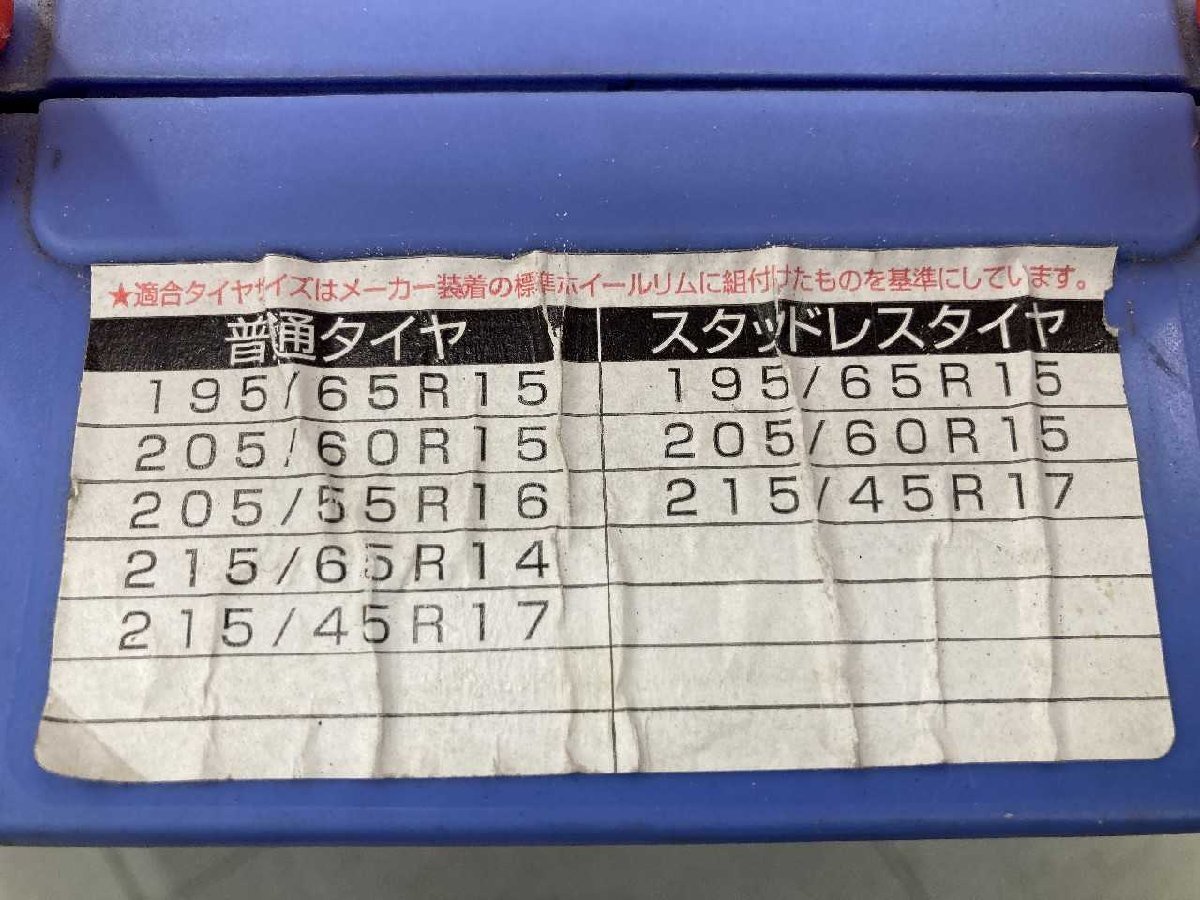 ★適合タイヤサイズはメーカー装着の標準ホイールリムに組付けたものを基準にしています。
普通タイヤ スタッドレスタイヤ
195/65R15 195/65R15
205/60R15 205/60R15
205/55R16 215/45R17
215/65R14
215/45R17